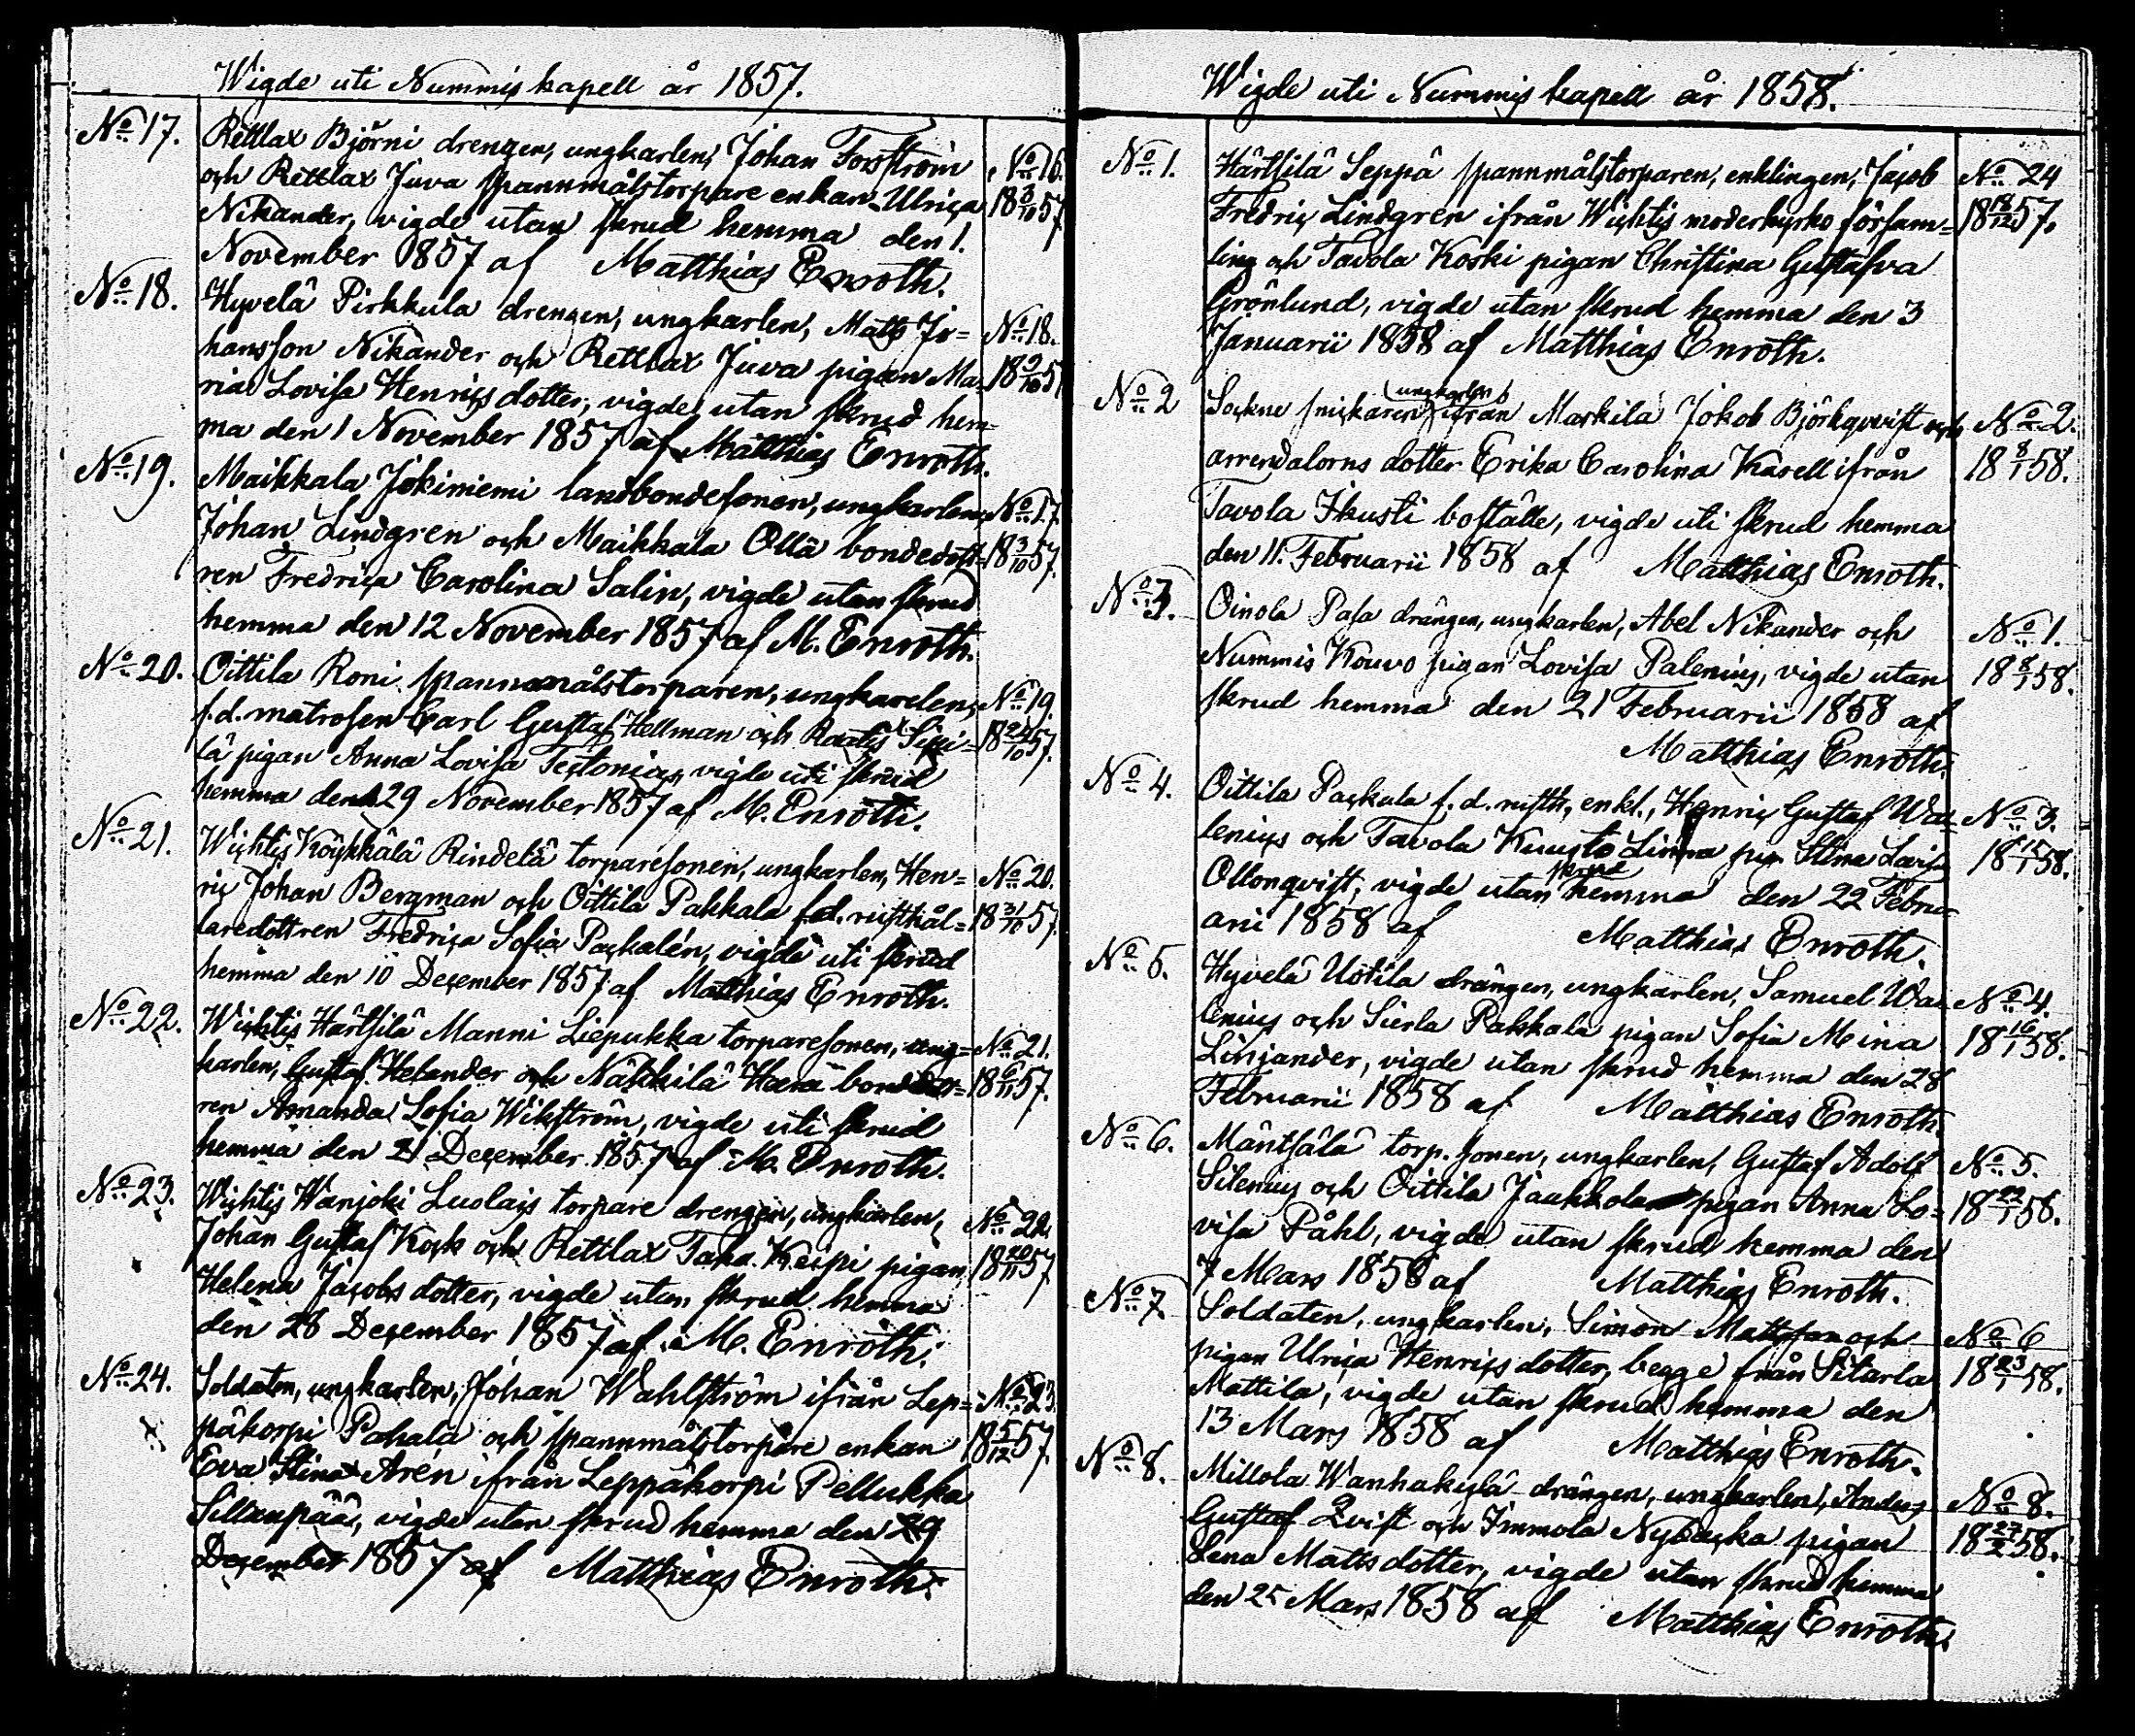 Wigde uti Nummis kapell år 1857.
No 17. Rettlax Björni drengen, ungkarlen, Johan Forsström No 16.
och Rettlax Juva spannmålstorpare enkan Ulrica 18 3/10 57
Nikander, vigde utan skrud hemma den 1.
November 1857 af Matthias Enroth.
No 18. Hyvelä Pirkkula drengen, ungkarlen, Matts Jo= No 18.
hansson Nikander och Rettlax Juva pigan Ma= 18 3/10 57
ria Lovisa Henricsdotter, vigde utan skrud hem=
ma den 1 November 1857 af Matthias Enroth.
No 19. Maikkala Jokiniemi landbondesonen, ungkarlen, No 17.
Johan Lindgren och Maikkala Ollä bondedott= 18 3/10 57.
ren Fredrica Carolina Salin, vigde utan skrud
hemma den 12 November 1857 af M. Enroth.
No 20. Oittila Roni spannmålstorparen, ungkarelen, No 19.
f.d. matrosen Carl Gustaf Hellman och Raatis 18 24/10 57.
lä pigan Anna Lovisa vigde uti skrud
hemma den 29 November 1857 af M. Enroth.
No 21. Wichtis Köykkälä Rindelä torparesonen, ungkarlen, Hen= No 20.
ric Johan Bergman och Oittila Pakkala f.d. rusthål= 18 31/10 57.
laredottren Fredrica Sofia Packalén, vigde uti skrud
hemma den 10 December 1857 af Matthias Enroth.
No 22. Wichtis Härtsilä Manni Liepukka torparesonen, ung= No 21.
karlen, Gustaf Helander och Näkkilä 18 6/11 57.
ren Amanda Sofia Wikström, vigde uti skrud
hemma den 21 December 1857 af M. Enroth.
No 23. Wichtis Wanjoki Luolais torpare drengen, ungkarlen, No 22
Johan Gustaf Kock och Rettlax Taka Keipi pigan 18 20/11 57.
Helena Jacobsdotter, vigde utan skrud hemma
den 26 December 1857 af M. Enroth.
No 24. Soldaten, ungkarlen, Johan Wahlström ifrån Lep= No 23.
päkorpi Pahala och spannmålstorpare enkan 18 5/12 57.
Eva Stina Arén ifrån Leppäkorpi Pellukka
Sillanpää, vigde utan skrud hemma den 29
December 1857 af Matthias Enroth.
Wigde uti Nummis kapell år 1858.
No 1. Härtsilä Seppä spannmålstorparen, enklingen, Jacob No 24
Fredric Lindgren ifrån Wichtis moderkyrko försam= 18 18/12 57.
ling och Tavola Koski pigan Christina Gustafva
Grönlund, vigde utan skrud hemma den 3
Januarii 1858 af Matthias Enroth.
No 2 Sockne snickaren, ungkarlen, ifrån Maskila Jakob Björkqvist och No 2.
arrendatorns dotter Erika Carolina Karell ifrån 18 8/1 58.
Tavola Ikusti boställe, vigde uti skrud hemma
den 11. Februarii 1858 af Matthias Enroth.
No 3. Oinola Pasa drängen, ungkarlen, Abel Nikander och No 1.
Nummis Kouvo pigan Lovisa Palenius, vigde utan 18 8/1 58.
skrud hemma den 21 Februarii 1858 af
Matthias Enroth.
No 4. Oittila Packala f.d. rusth., enkl., Henric Gustaf Wa= No 3.
lenius och Tavola Kuusto Linna pig. Stina Lovisa 18 15/1 58.
Ollonqvist, vigde utan skrud hemma den 22 Febru=
arii 1858 af Matthias Enroth.
No 5. Hyvelä Uotila drängen, ungkarlen, Samuel Wa= No 4.
lenius och Sierla Pakkala pigan Sofia Mina 18 16/1 58.
Linjander, vigde utan skrud hemma den 28
Februarii 1858 af Matthias Enroth.
No 6. Mäntsälä torp. sonen, ungkarlen, Gustaf Adolf No 5.
Silenius och Oittila Jaakkola pigan Anna Lo= 18 22/1 58.
visa Påhl, vigde utan skrud hemma den
7 Mars 1858 af Matthias Enroth.
No 7 Soldaten, ungkarlen, Simon Mattsson och No 6
pigan Ulrica Henricsdotter, begge från Sitarla 18 23/1 58.
Mattila, vigde utan skrud hemma den
13 Mars 1858 af Matthias Enroth.
No 8. Millola Wanhakylä drängen, ungkarlen, Anders No 8.
Gustaf Qvist och Immola Nybacka pigan 18 27/2 58.
Lena Mattsdotter, vigde utan skrud hemma
den 25 Mars 1858 af Matthias Enroth.